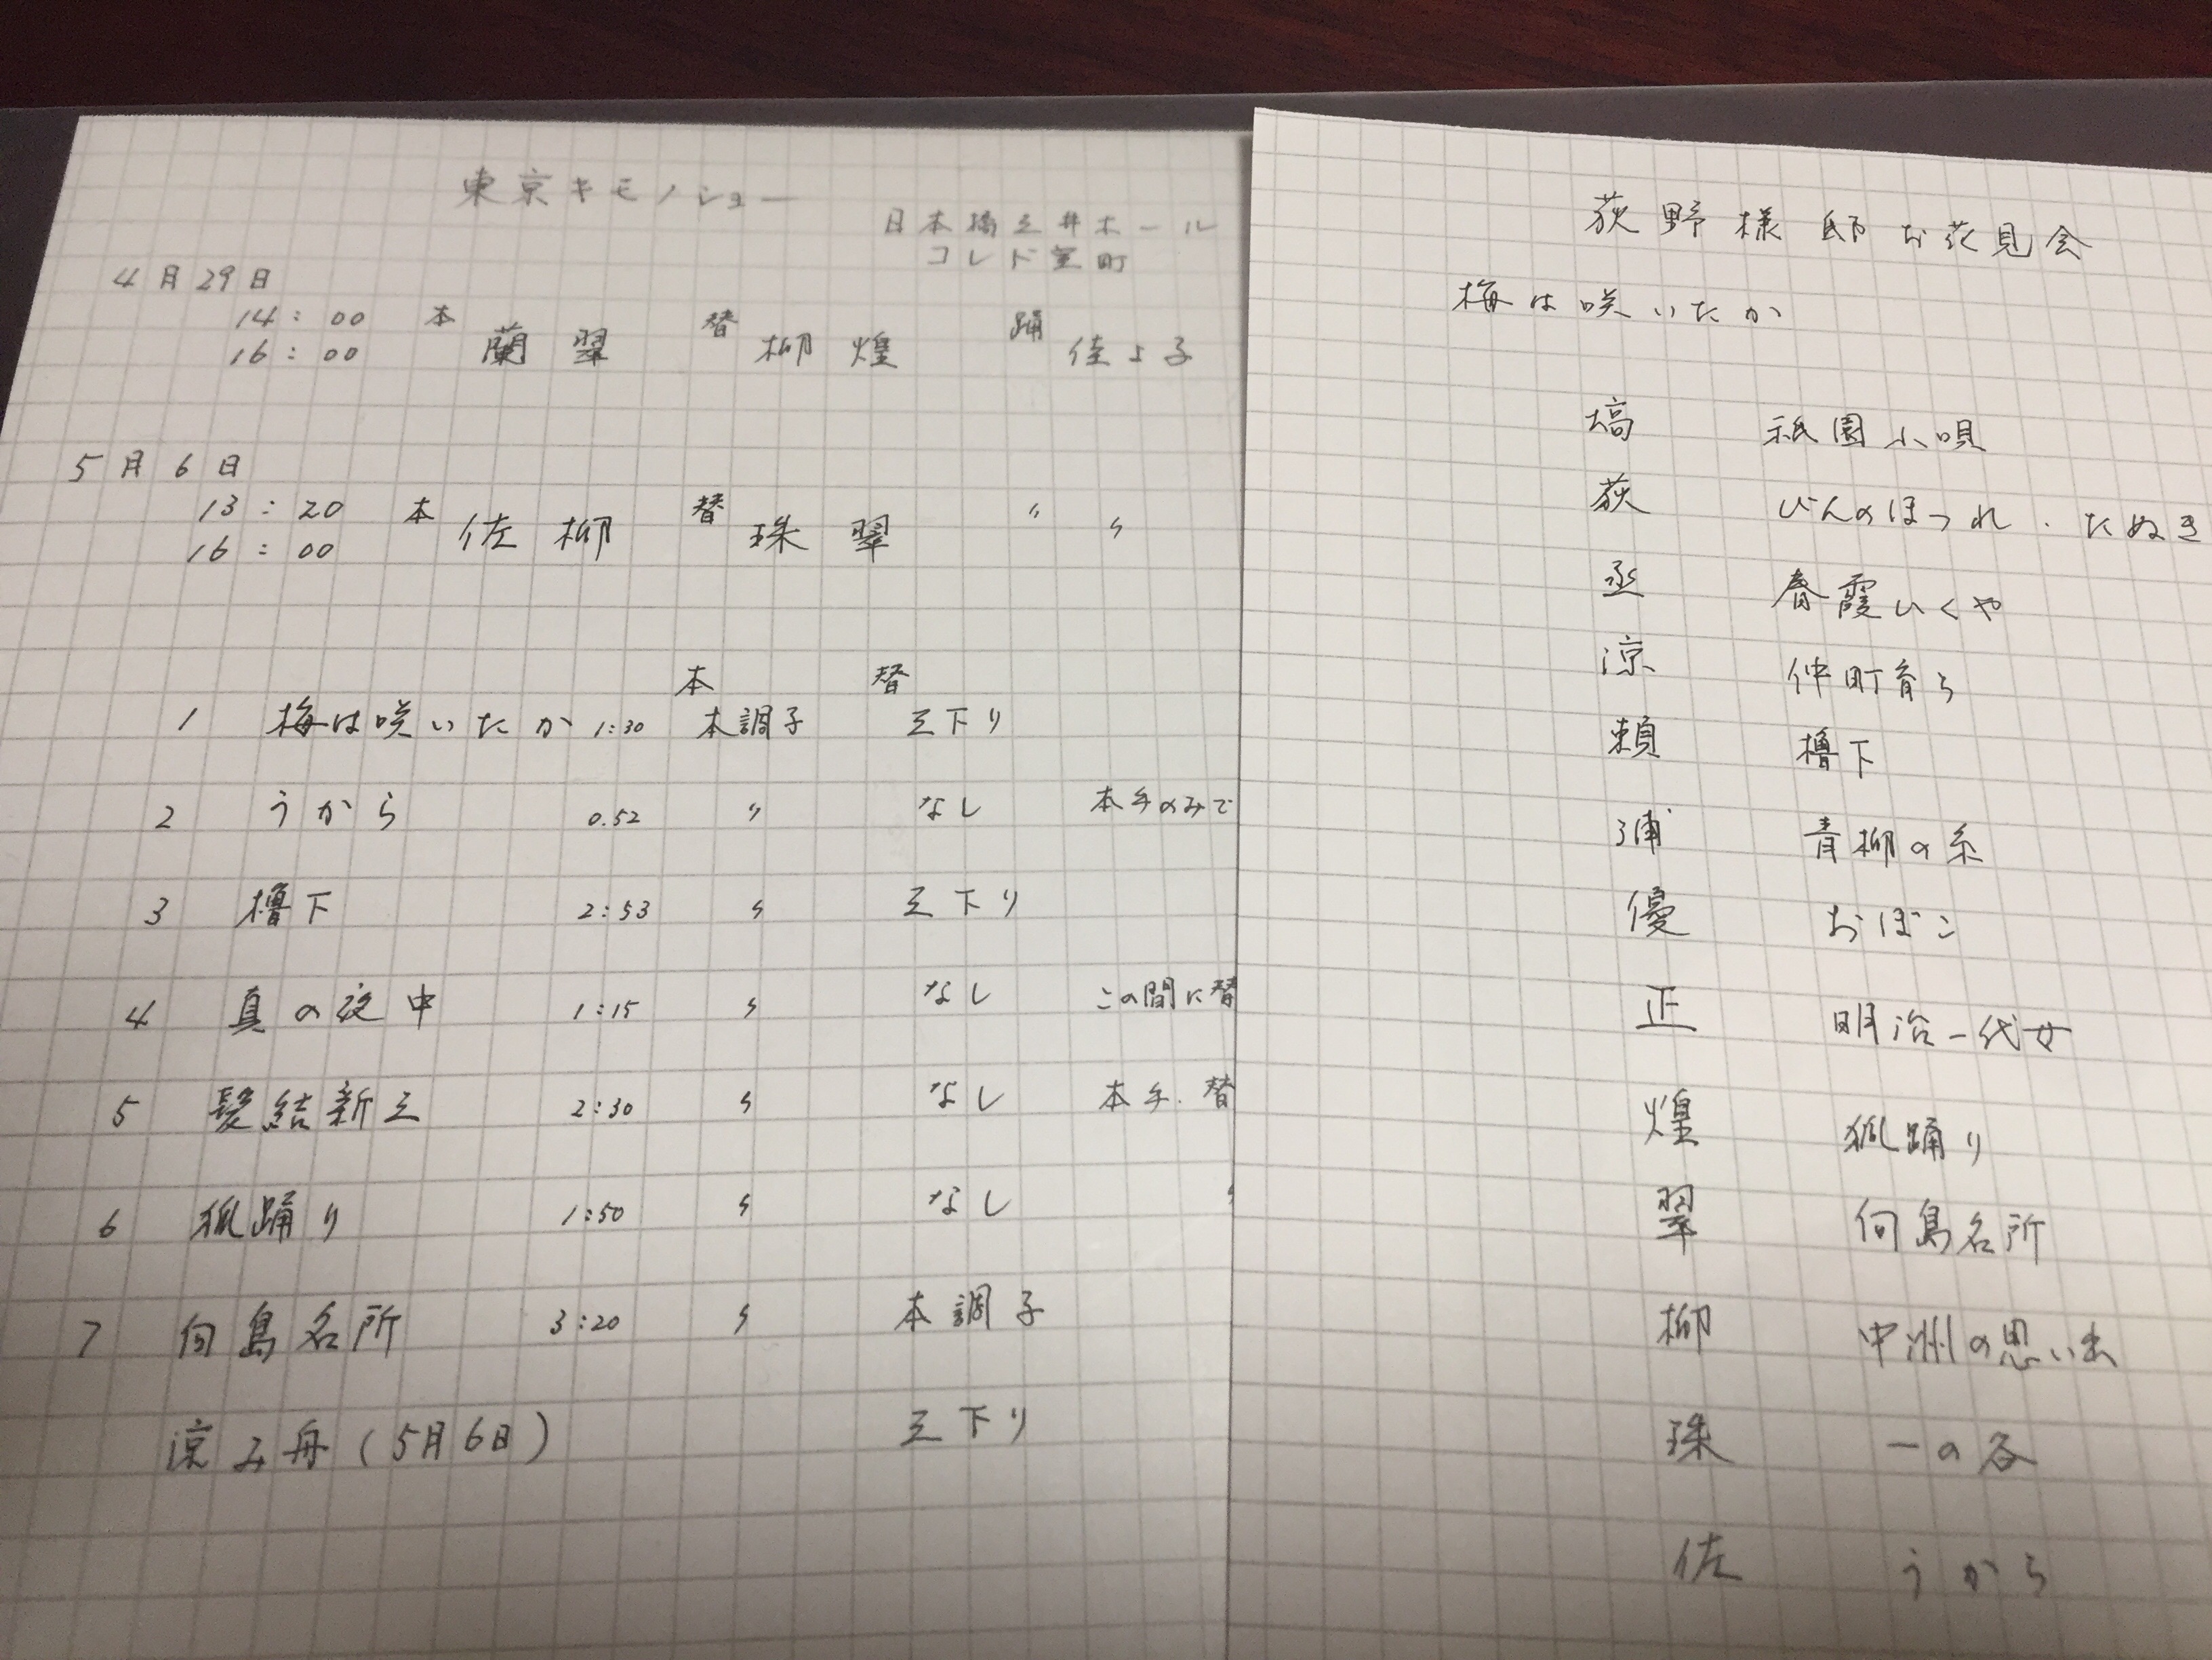 東京キモノショー
日本橋三井ホール
コレド室町
4月29日
14:00 本 蘭翠 替 柳煌 踊 佳よ子
16:00
5月6日
13:20 本 佐柳 替 珠翠 〃 〃
16:00
本 替
1 梅は咲いたか 1:30 本調子 三下り
2 うから 0.52 〃 なし 本手のみで
3 櫓下 2:53 〃 三下り
4 真の夜中 1:15 〃 なし この間に替
5 髪結新三 2:30 〃 なし 本手.替
6 狐踊り 1:50 〃 なし 〃
7 向島名所 3:20 〃 本調子
涼み舟(5月6日) 三下り
荻野様邸お花見会
梅は咲いたか
塙 祇園小唄
荻 びんのほつれ.たぬき
丞 春霞いくや
涼 仲町育ち
頼 櫓下
浦 青柳の糸
優 おぼこ
正 明治一代女
煌 狐踊り
翠 向島名所
柳 中洲の思い出
珠 一の谷
佐 うから